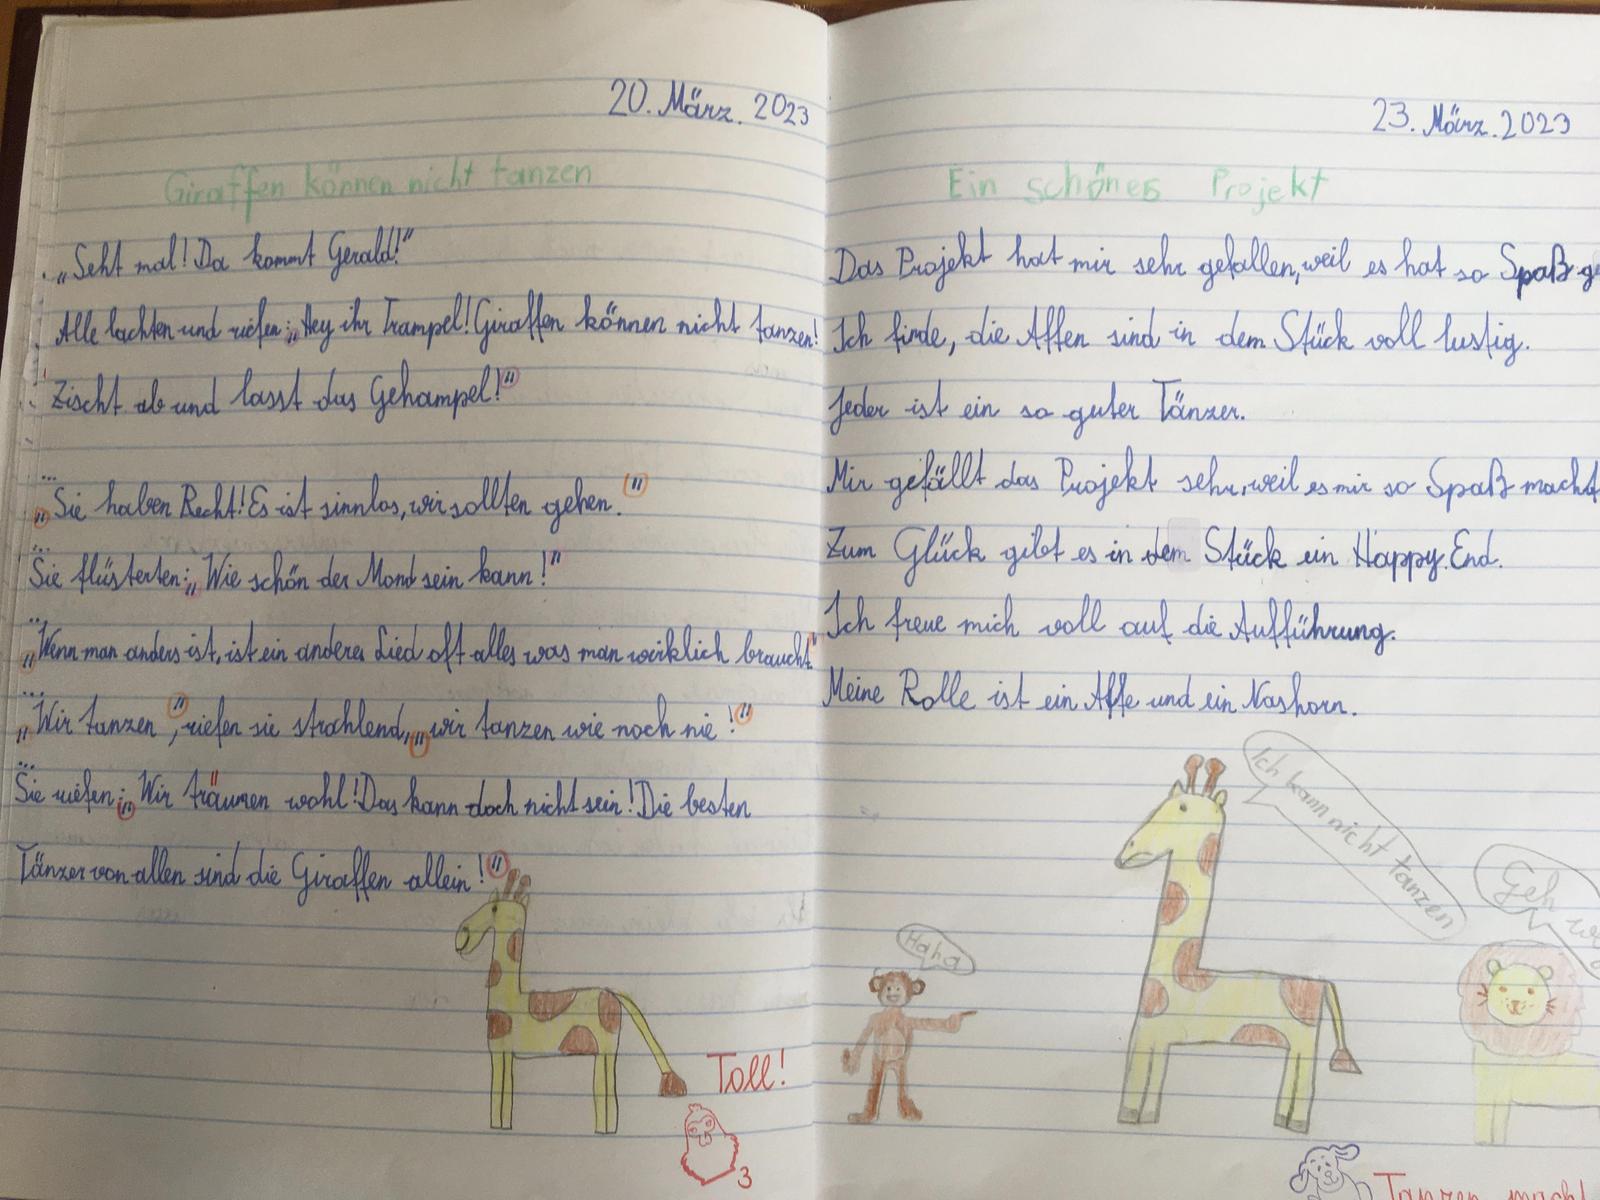 20. März. 2023
Giraffen können nicht tanzen
„Seht mal! Da kommt Gerald!“
Alle lachten und riefen: „Hey ihr Trampel! Giraffen können nicht tanzen!
Zischt ab und lasst das Gehampel!“
...
„Sie haben Recht! Es ist sinnlos, wir sollten gehen.“
...
Sie flüsterten: „Wie schön der Mond sein kann!“
...
„Wenn man anders ist, ist ein anderes Lied oft alles was man wirklich braucht.“
...
„Wir tanzen“, riefen sie strahlend, „wir tanzen wie noch nie!“
...
Sie riefen: „Wir träumen wohl! Das kann doch nicht sein! Die besten
Tänzer von allen sind die Giraffen allein!“
Toll!
3
23. März. 2023
Ein schönes Projekt
Das Projekt hat mir sehr gefallen, weil es hat so Spaß
Ich finde, die Affen sind in dem Stück voll lustig.
Jeder ist ein so guter Tänzer.
Mir gefällt das Projekt sehr, weil es mir so Spaß macht
Zum Glück gibt es in dem Stück ein Happy End.
Ich freue mich voll auf die Aufführung.
Meine Rolle ist ein Affe und ein Nashorn.
Ich kann nicht tanzen
Geh
Haha
Tanzen macht